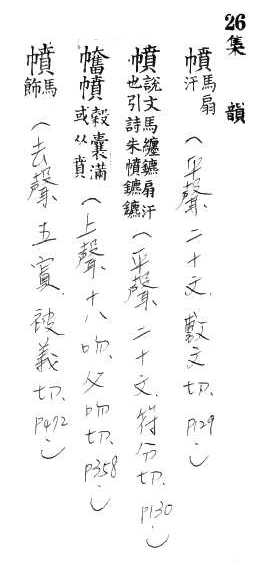 26集韻
幩馬扇汗(平聲、二十文、敷文切、P129)
幩說文馬纏鑣扇汗也引詩朱幩鑣鑣(平聲、二十文、符分切、P130)
幩穀囊滿或从賁(上聲、十八吻、父吻切、P358)
幩馬飾(去聲、五寘、被義切、P472)